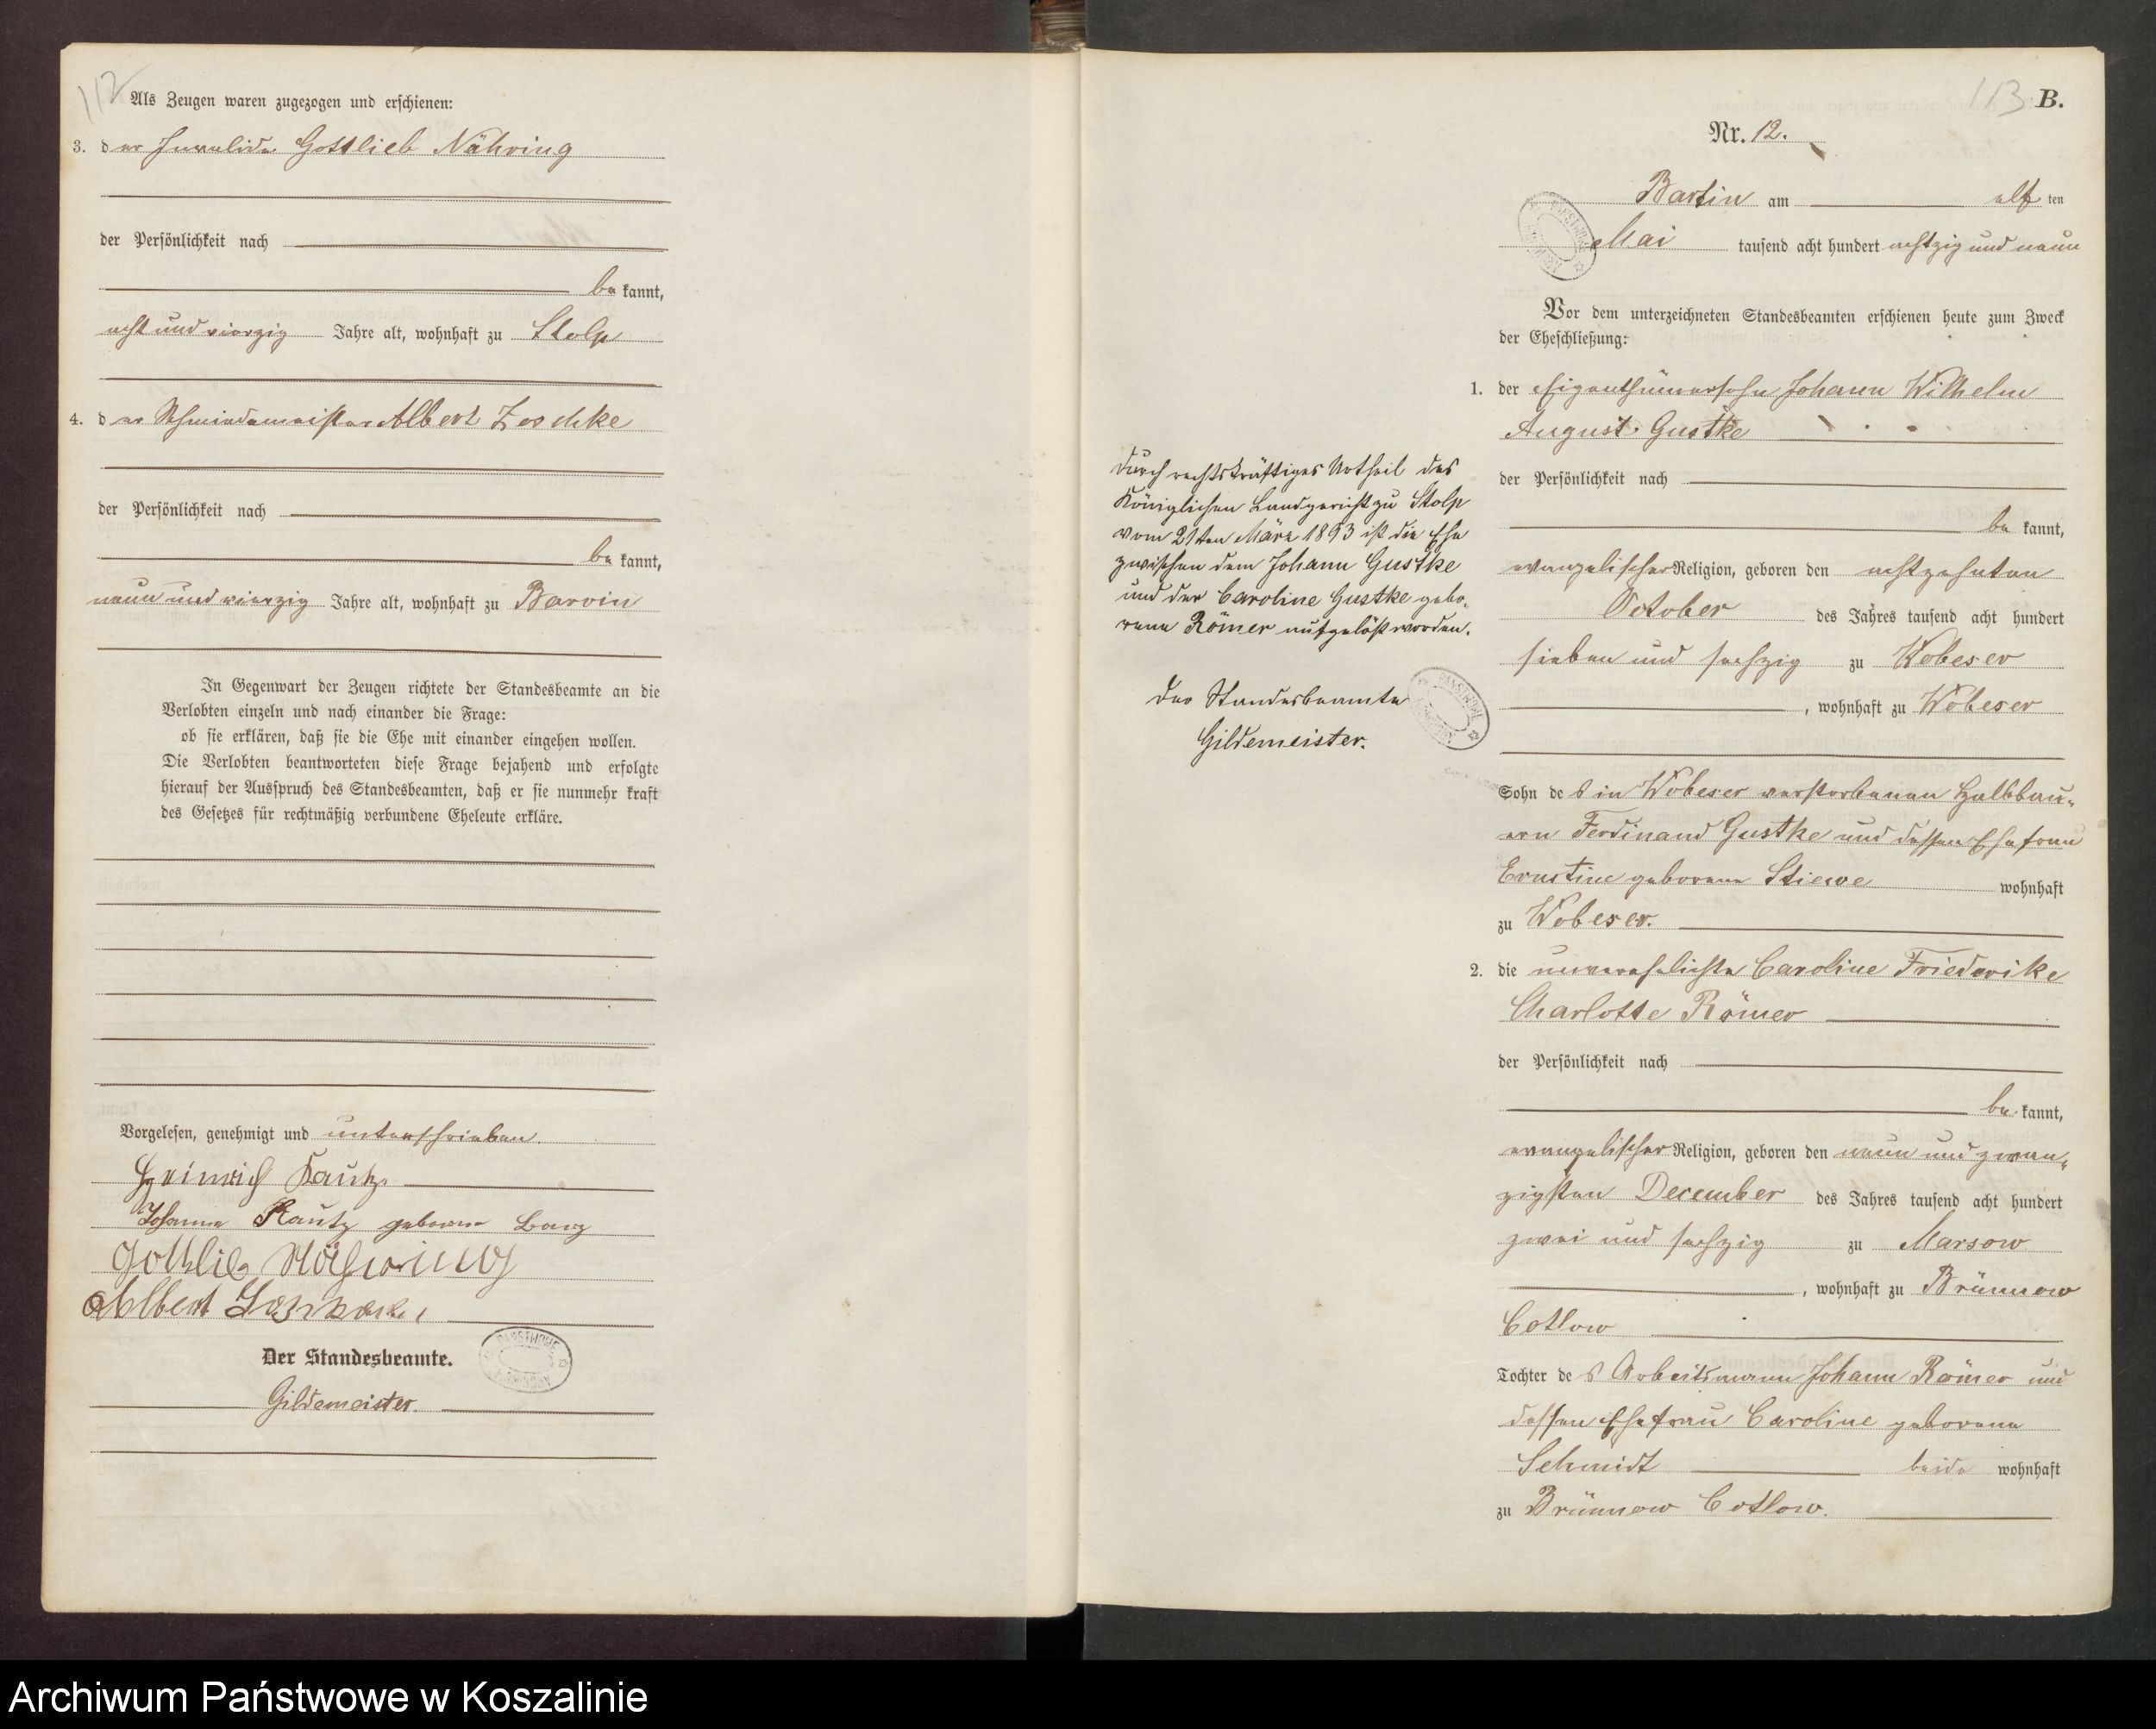 112
Als Zeugen waren zugezogen und erschienen:
3. der Invalide Gottlieb Nähring
der Persönlichkeit nach
bekannt,
acht und vierzig Jahre alt, wohnhaft zu Stolp
4. der Schmiedemeister Albert Zoschke
der Persönlichkeit nach
bekannt,
neun und vierzig Jahre alt, wohnhaft zu Barvin
In Gegenwart der Zeugen richtete der Standesbeamte an die
Verlobten einzeln und nach einander die Frage:
ob sie erklären, daß sie die Ehe mit einander eingehen wollen.
Die Verlobten beantworteten diese Frage bejahend und erfolgte
hierauf der Ausspruch des Standesbeamten, daß er sie nunmehr kraft
des Gesetzes für rechtmäßig verbundene Eheleute erkläre.
Vorgelesen, genehmigt und unterschrieben
Heinrich Kautz
Johanne Kautz geborene
Gottlieb Nähring
Albert
Der Standesbeamte.
Gildemeister.
113 B.
Nr. 12.
Bartin am elften
Mai tausend acht hundert achtzig und neun
Vor dem unterzeichneten Standesbeamten erschienen heute zum Zweck
der Eheschließung:
1. der Eigenthümersohn Johann Wilhelm
August Gustke
der Persönlichkeit nach
bekannt,
evangelischer Religion, geboren den achtzehnten
October des Jahres tausend acht hundert
sieben und sechzig zu Wobeser
, wohnhaft zu Wobeser
Sohn des in Wobeser verstorbenen Halbbau-
ern Ferdinand Gustke und dessen Ehefrau
Ernstine geborene Stiewe wohnhaft
zu Wobeser.
2. die unverehelichte Caroline Friederike
Charlotte Römer
der Persönlichkeit nach
bekannt,
evangelischer Religion, geboren den neun und zwan-
zigsten December des Jahres tausend acht hundert
zwei und sechzig zu Marsow
, wohnhaft zu Brünnow
Cotlow
Tochter des Arbeitsmann Johann Römer und
dessen Ehefrau Caroline geborene
Schmidt beide wohnhaft
zu Brünnow Cotlow.
Durch rechtskräftiges Urtheil des
Königlichen Landgericht zu Stolp
vom 21ten März 1893 ist die Ehe
zwischen dem Johann Gustke
und der Caroline Gustke gebo-
rene Römer aufgelöst worden.
Der Standesbeamte
Gildemeister.
Archiwum Państwowe w Koszalinie